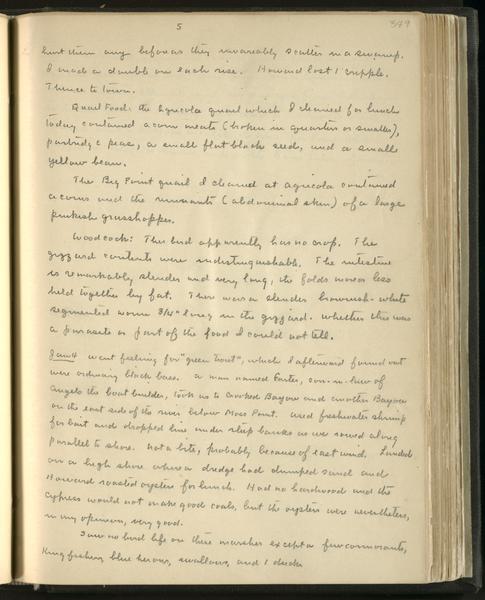 5
379
hunt them any before as they invareably scatter in a swamp.
I made a double on each rise. Howard lost 1 cripple.
Thence to town.
Quail Food: the Agricola quail which I cleaned for lunch
today contained acorn meats (broken in quarters or smaller),
partridge peas, a small flat black seed, and a small
yellow bean.
The Big Point quail I cleaned at Agricola contained
acorns and the remnants (abdominal skin) of a large
pinkish grasshopper.
Woodcock: This bird apparently has no crop. The
gizzard contents were indistinguishable. The intestine
is remarkably slender and very long, the folds more or less
held together by fat. There was a slender brownish-white
segmented worm 3/4" long in the gizzard. Whether this was
a parasite or part of the food I could not tell.
Jan 4 Went fishing for "green trout", which I afterward found out
were ordinary black bass. A man named Porter, son-in-law of
Angelo the boat builder, took us to Crooked Bayou and another Bayou
on the east side of the river below Moss Point. Used freshwater shrimp
for bait and dropped line under steep banks as we rowed along
parallel to shore. Not a bite, probably because of east wind. Landed
on a high shore where a dredge had dumped sand and
Howard roasted oysters for lunch. Had no hardwood and the
cypress would not make good coals, but the oysters were nevertheless,
in my opinion, very good.
Saw no bird life on these marshes except a few cormorants,
Kingfishers, blue herons, swallows, and 1 duck